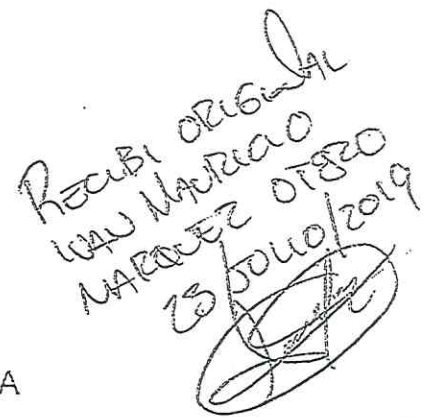 RECIBI ORIGINAL
IVAN MAURICIO
MARQUEZ OTERO
25/JULIO/2019
A